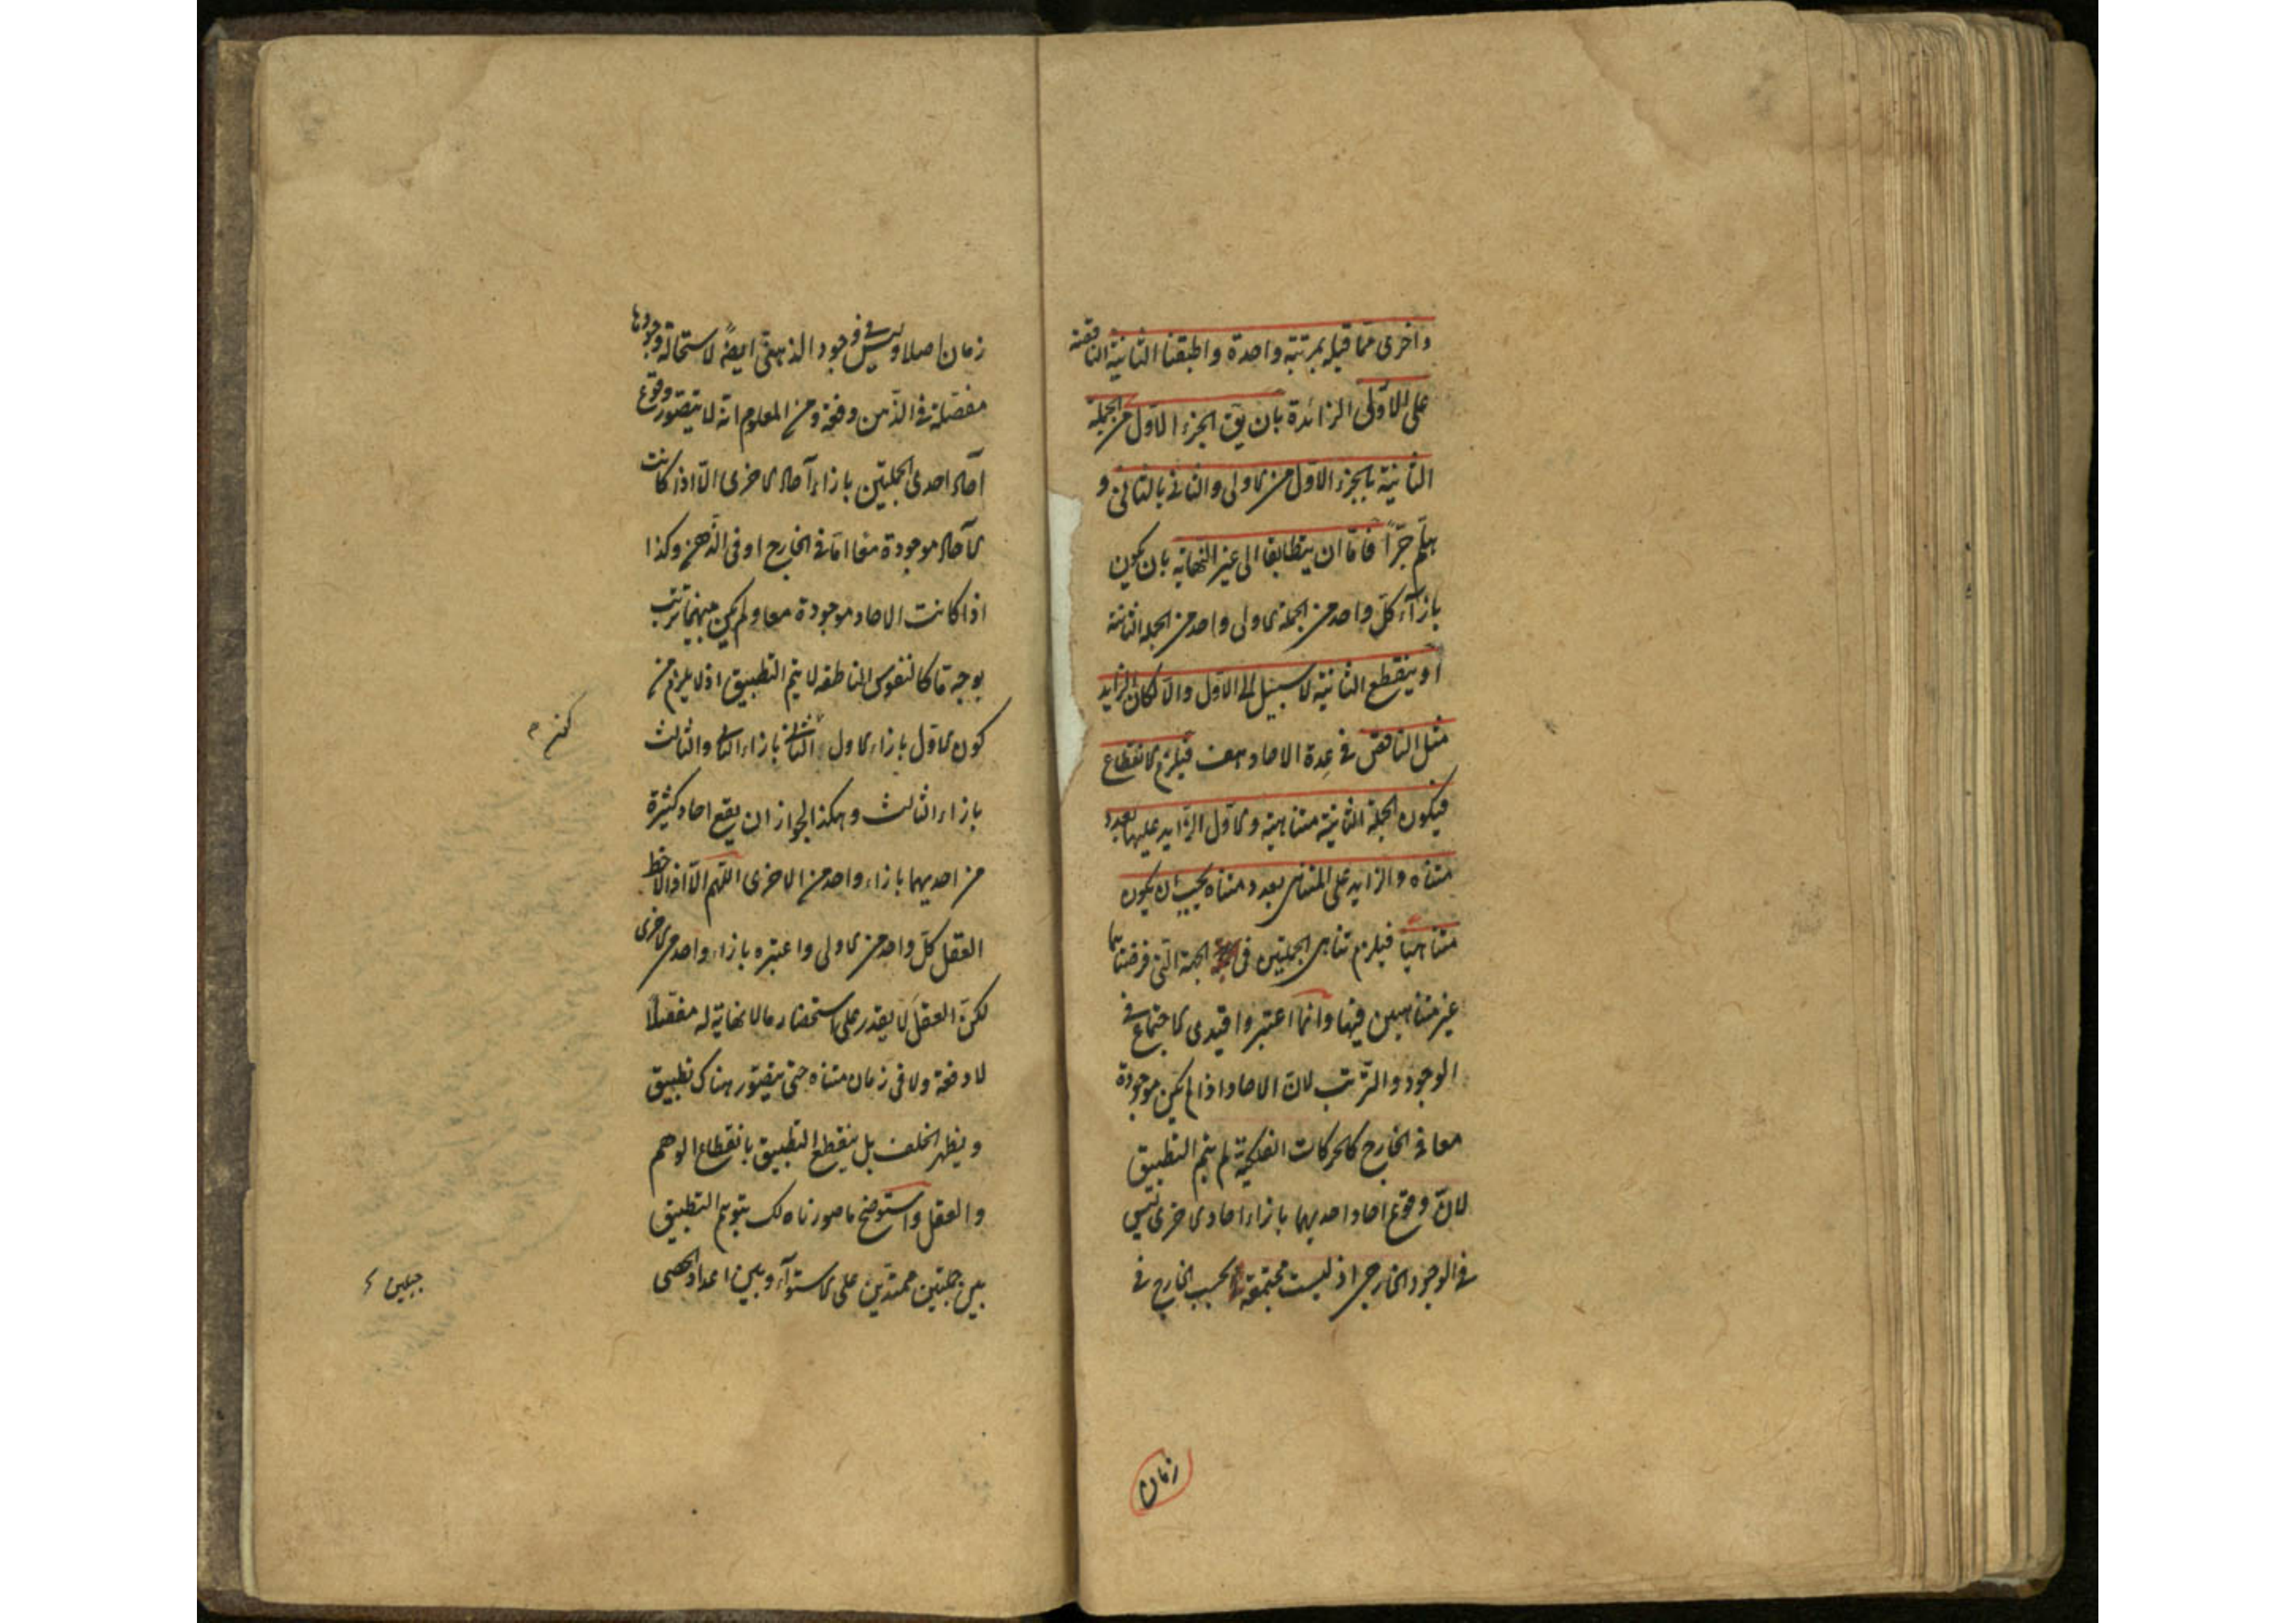 واخرى مما قبله بمرتبة واحدة واطبقنا الثانية الناقصة
على الاولى الزائدة بان يق الجزء الاول من الجملة
الثانية بالجزء الاول من الاولى والثانى بالثانى و
هلم جرّاً فامّا ان يتطابقا الى غير النهاية بان يكون
بازآء كلّ واحد من الجملة الاولى واحد من الجملة الثانية
او ينقطع الثانية لا سبيل الى الاوّل والّا لكان الزايد
مثل الناقص فى عدة الاحاد هف فيلزم الانقطاع
فيكون الجملة الثانية متناهية والاوّل الزايد عليها بعدد
متناه والزايد على المتناهى بعدد متناه يجب ان يكون
متناهياً فيلزم تناهى الجملتين فى الجهة التى فرضناهما
غير متناهيين فيها وانّما اعتبروا قيدى الاجتماع فى
الوجود والترتب لانّ الاحاد اذا لم يكن موجودة
معا فى الخارج كالحركات الفلكية لم يتم التطبيق
لانّ وقوع احاد احديهما بازاء احاد الاخرى ليس
فى الوجود الخارجى اذ ليست مجتمعة بحسب الخارج فى
زمان
زمان اصلا وليس فى وجود الذهنى ايضاً لاستحالة وجودها
مفصّلة فى الذّهن دفعة ومن المعلوم انّه لا يتصوّر وقوع
آحاد احدى الجملتين بازاء آحاد الاخرى الّا اذا كانت
الآحاد موجودة معا امّا فى الخارج او فى الذّهن وكذا
اذا كانت الاحاد موجودة معا ولم يكن بينهما ترتب
بوجه ما كالنفوس الناطقه لا يتم التطبيق اذ لا يلزم من
كون الاوّل بازاء الاول الثانى بازاء الثانى والثالث
بازاء الثالث وهكذا لجواز ان يقع احاد كثيرة
من احديهما بازاء واحد من الاخرى اللّهم الّا اذا لاحظ
العقل كلّ واحد من الاولى واعتبره بازاء واحد من الاخرى
لكنّ العقل لا يقدر على استحضار ما لا نهاية له مفصّلا
لا دفعة ولا فى زمان متناه حتّى يتصّور هناك تطبيق
ويظهر الخلف بل ينقطع التطبيق بانقطاع الوهم
والعقل واستوضح ما صورناه لك بتوهم التطبيق
بين جملتين ممتدّين على الاستوآء وبين اعداد الحصى